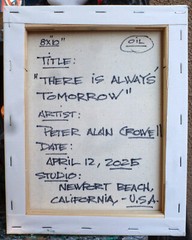 8X10"
OIL
TITLE:
"THERE IS ALWAYS
TOMORROW"
ARTIST:
PETER ALAN CROWELL
DATE:
APRIL 12, 2025
STUDIO:
NEWPORT BEACH,
CALIFORNIA, - U.S.A.